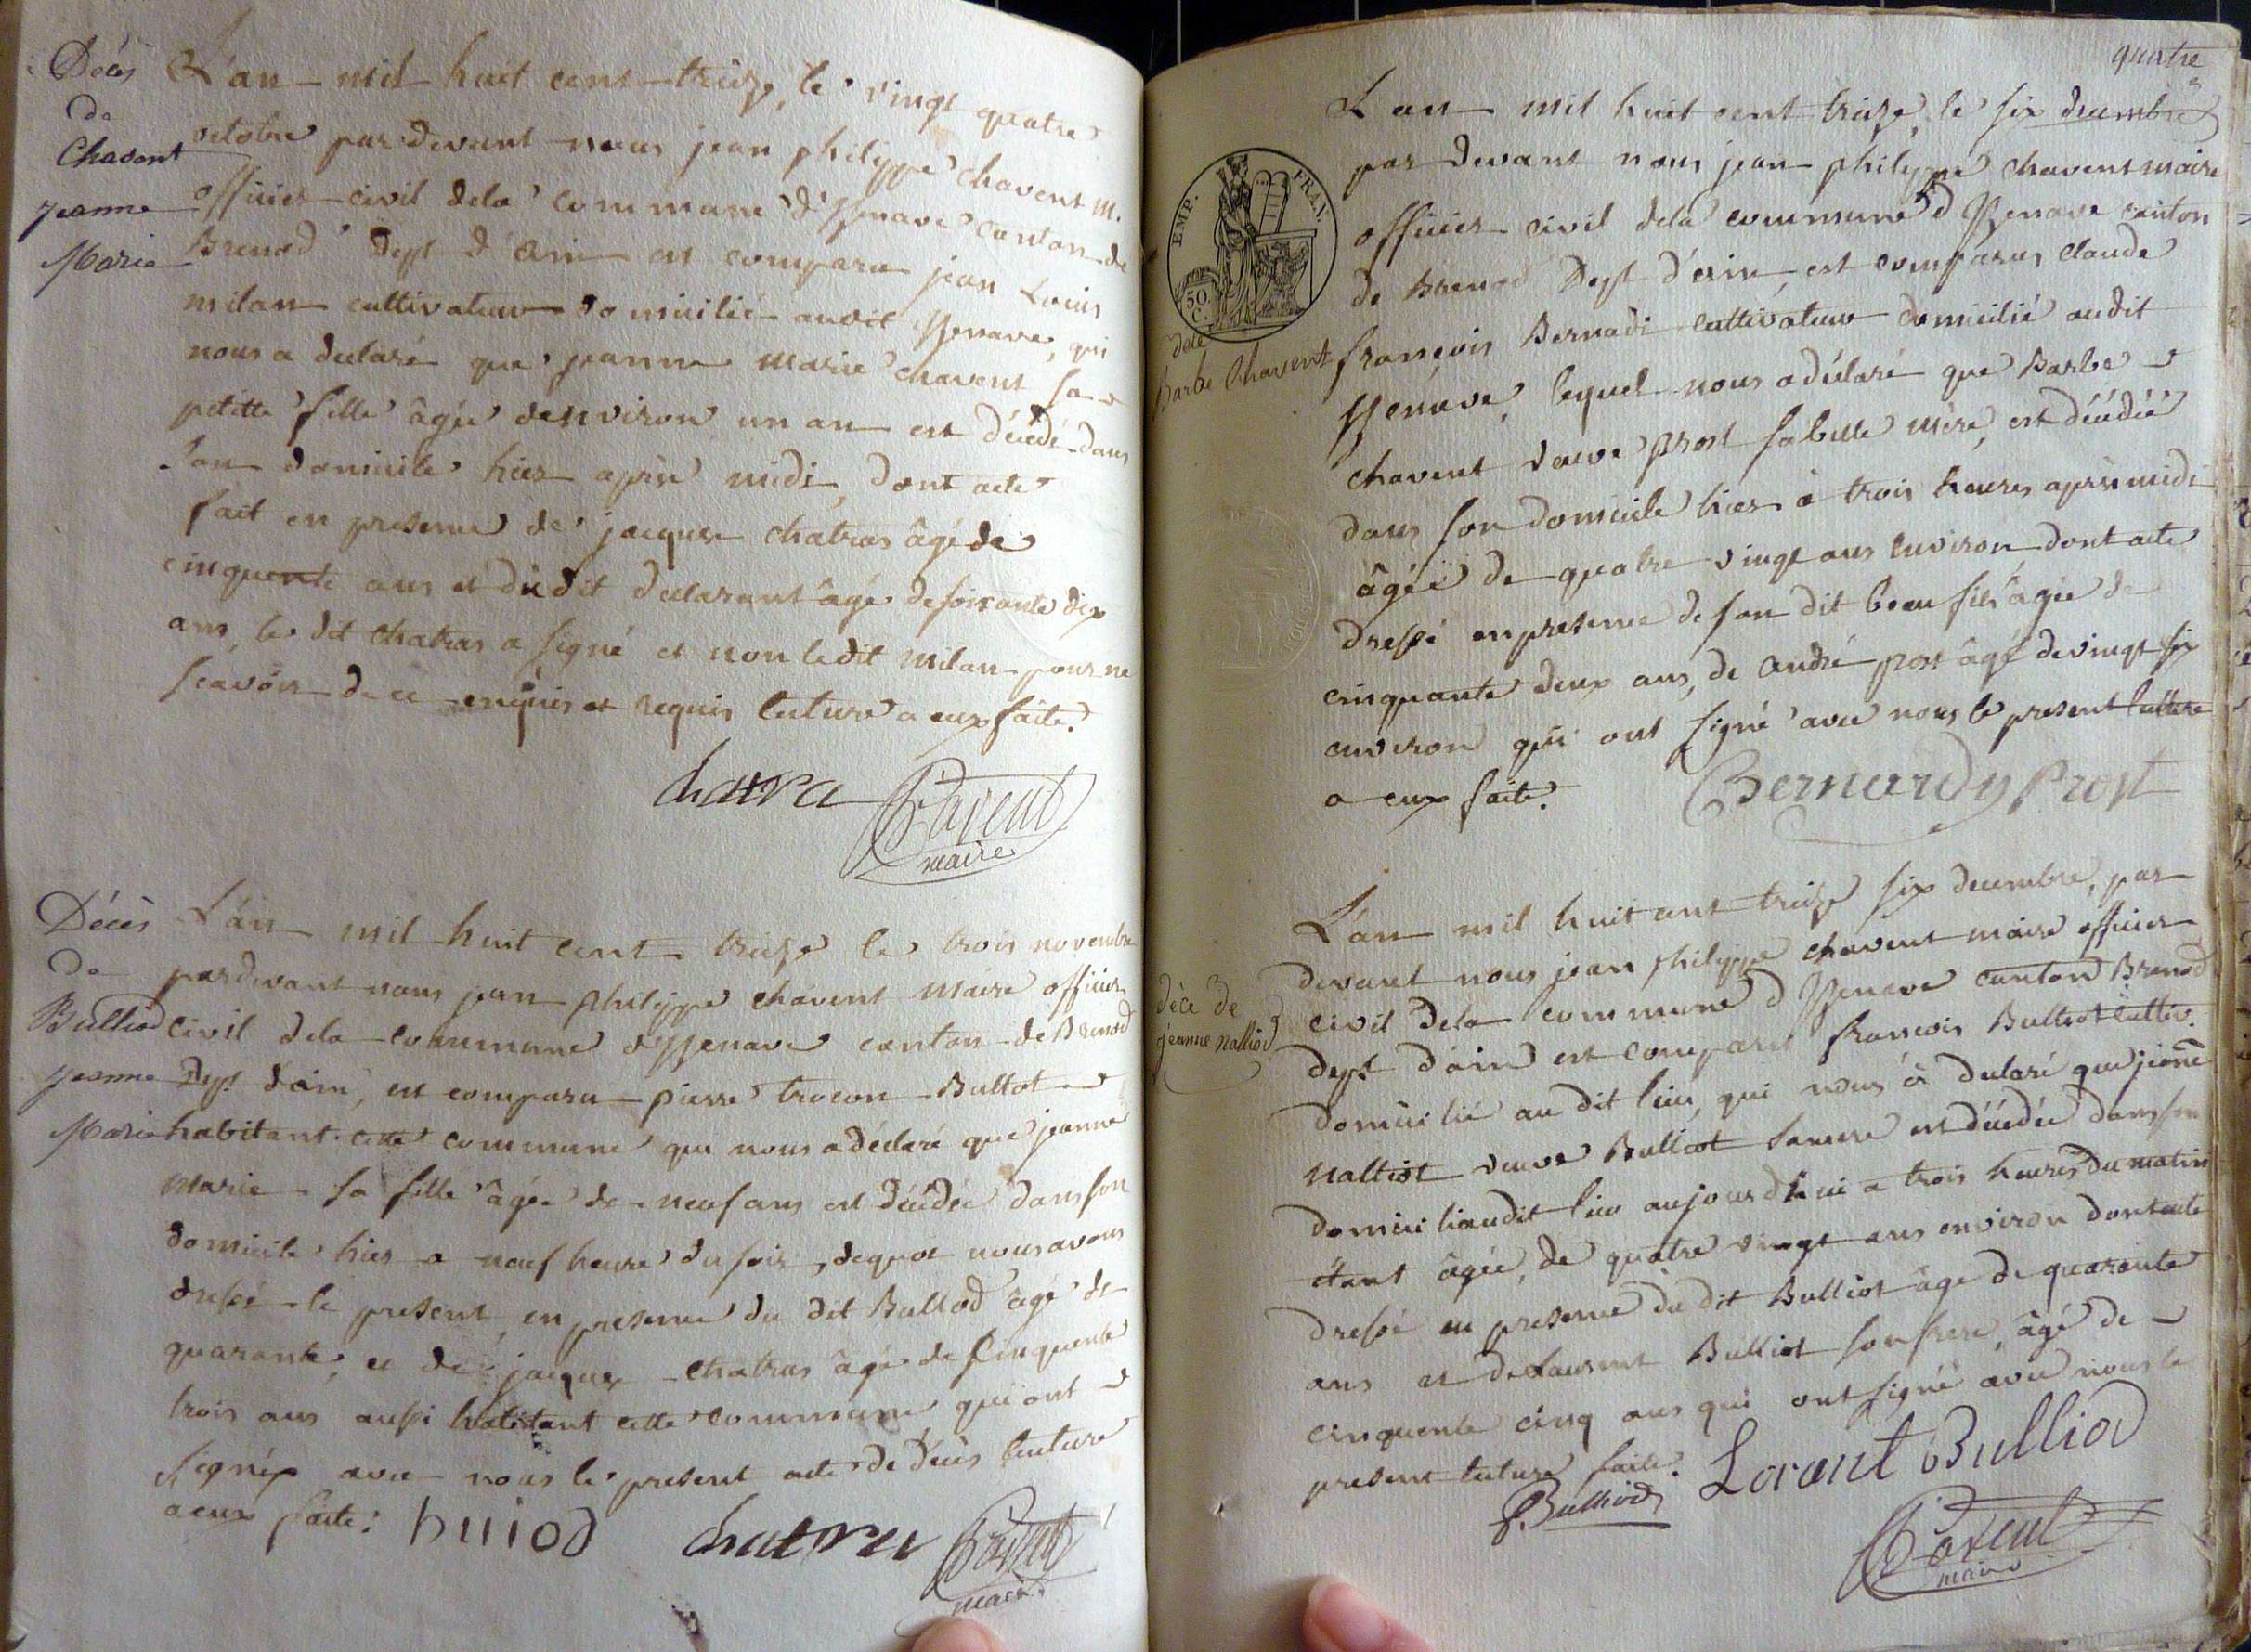 Décès
de
Chavent
jeanne
Marie
L'an mil huit cent treize, le vingt quatre
octobre par devant nous jean philippe chavent m.
officier civil dela commune d'Yzenave canton de
Brenod Dept d'ain est comparu jean Louis
milan cultivateur domicilié audit Yzenave, qui
nous a declaré que jeanne marie chavent sa
petitte fille âgée denviron un an est décédé dans
son domicile hier après midi, dont acte
fait en presence de jacques chatras âgé de
cinquente ans et dudit declarant âgé de soixante dix
ans, le dit chatras a signé et non ledit milan pour ne
scavoir de ce enquis et requis lecture a eux faite.
chatra Chavent
maire
Décès
de
Bulliod
jeanne
Marie
L'an mil huit cent treize le trois novembre
pardevant nous jean philippe chavent maire officier
civil dela commune d'Yzenave canton de Brenod
Dept d'ain, est comparu pierre trocon Bullot
habitant cette commune qui nous a déclaré que jeanne
marie sa fille âgée de neuf ans est décédée dans son
domicile hier a neuf heure du soir, dequoi nous avons
dressé le present, en presence du dit Balliod âgé de
quarante, et de jacques chatras âgé de cinquente
trois ans aussi habitant cette commune qui ont
signés avec nous le present acte de décès lecture
a eux faite. chatra Chavent
maire
quatre
EMP. FRAN.
50.
C.
déce
Barbe Chavent
L'an mil huit cent treize, le six decembre
par devant nous jean philippe chavent maire
officier civil dela commune d'Yzenave canton
de Brenod Dept d'ain, est comparus claude
françois Bernadi cultivateur domicilié audit
Yzenave, lequel nous a déclaré que Barbe
chavent veuve prost sa belle mère, est décédée
dans son domicile hier à trois heures après midi
âgée de quatre vingt ans environ dont acte
dressé en presence de son dit beau fils âgée de
cinquante deux ans, de andré prost âgé de vingt six
environ qui ont signé avec nous le present lecture
a eux faite. Bernardy Prost
déce de
jeanne nalliod
L'an mil huit cent treize six decembre, par
devant nous jean philippe chavent maire officier
civil dela commune d'Yzenave canton Brenod
dept d'ain est comparu francois Bulliot cultiv.
domicilié au dit lieu, qui nous à declaré que jeane
nalliot veuve Bulliot sa mere est décédée dans son
domicil audit lieu aujourdhui a trois heures du matin
étant âgée, de quatre vingt ans environ dont acte
dressé en presence du dit Bulliot âge de quarante
ans et de Laurent Bulliot son frere, âgé de
cinquente cinq ans qui ont signé avec nous le
present lecture faite. Lorant Bulliod
f. Bulliod
Chavent
maire